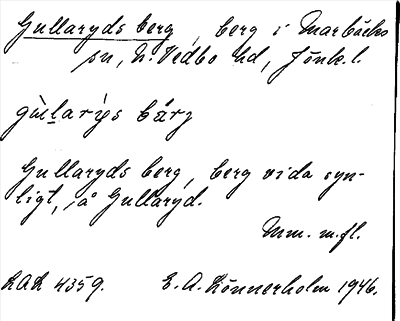 Gullaryds berg, berg i Marbäcks
sn, N. Vedbo hd, Jönk. l.
gùlarỳs bárj
Gullaryds berg, berg vida syn-
ligt, å Gullaryd.
Mm. m.fl.
LAL 4359. E. A. Lönnerholm 1946.